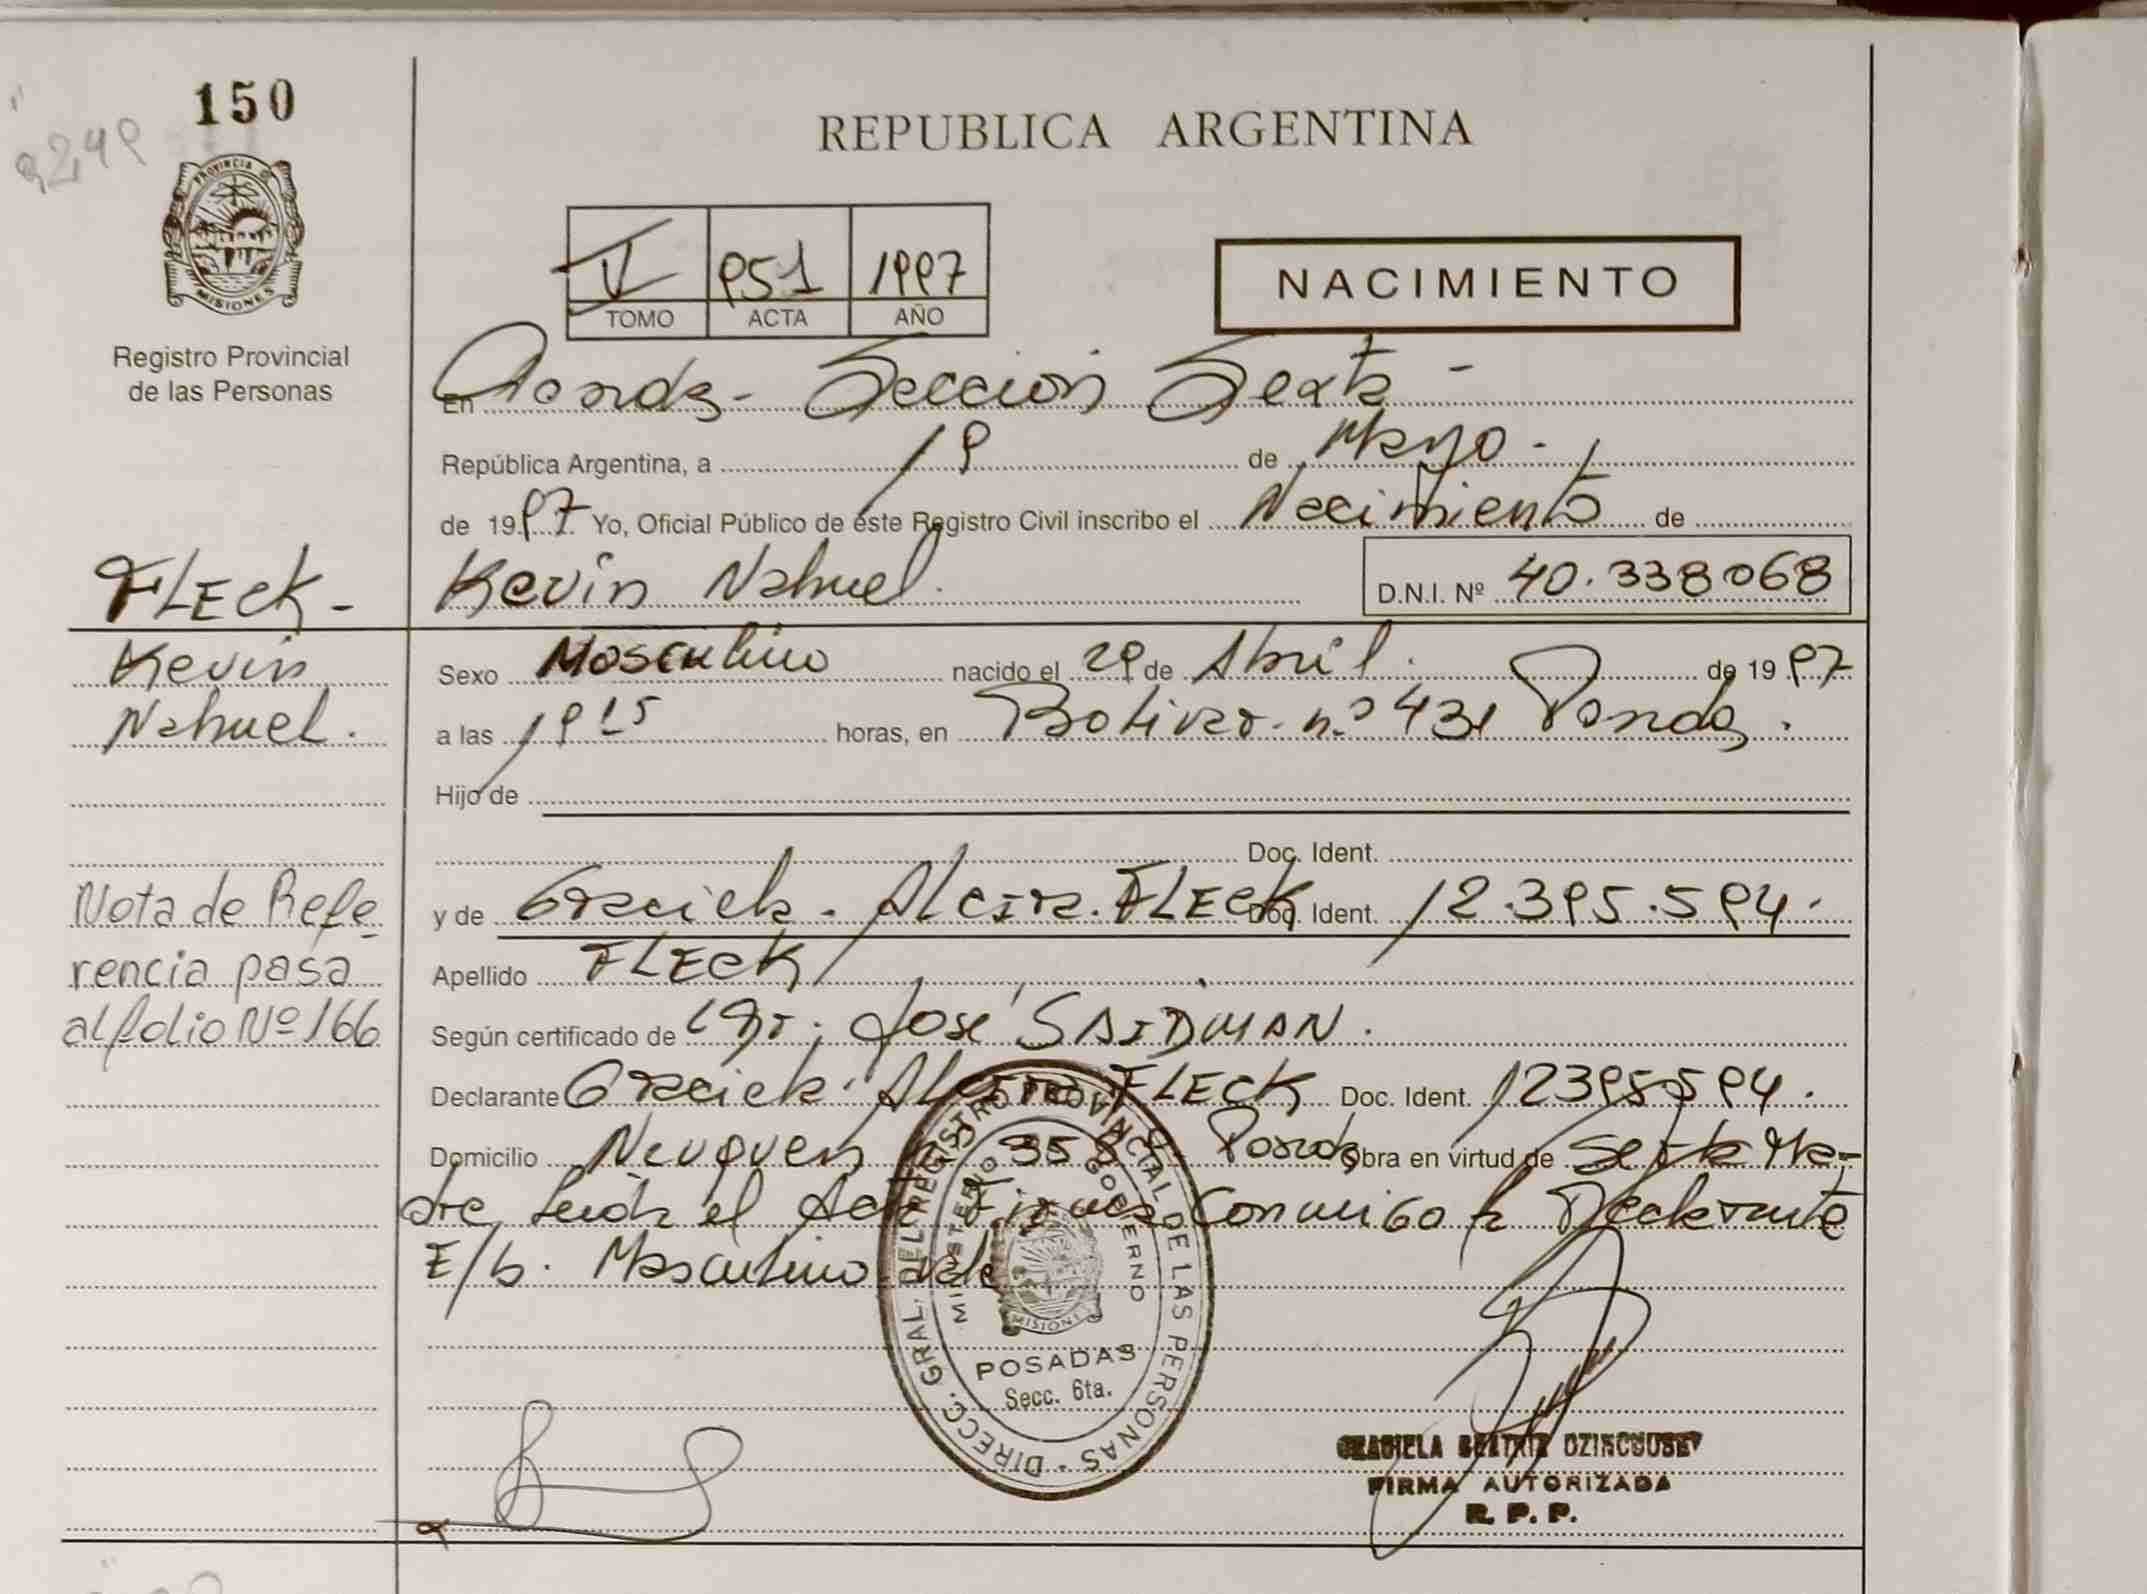 150
REPUBLICA ARGENTINA
PROVINCIA DE
MISIONES
Registro Provincial
de las Personas
V 951 1997
TOMO ACTA AÑO
NACIMIENTO
En Posadas - Sección Sexta -
República Argentina, a 19 de Mayo -
de 1997 Yo, Oficial Público de este Registro Civil inscribo el Nacimiento de
Kevin Nahuel. D.N.I. Nº 40.338068
FLECK -
Kevin
Nahuel.
Sexo Masculino nacido el 29 de Abril. de 1997
a las 19 15 horas, en Bolivar. nº 431 Posadas.
Hijo de
Doc. Ident.
y de Graciela. Alcira. FLECK Doc. Ident. 12.395.594.
Apellido FLECK
Según certificado de Dr. José SAIDMAN.
Declarante Graciela. Alcira FLECK Doc. Ident. 12395594.
Domicilio Neuquen 3588 Posadas Obra en virtud de ser la Ma-
dre, Leida el Acta Firma Conmigo la Declarante
E/b. Masculino vale
Nota de Refe-
rencia pasa
al folio Nº 166
DIRECC. GRAL. DEL REGISTRO PROVINCIAL DE LAS PERSONAS
MINISTERIO GOBERNO
MISIONES
POSADAS
Secc. 6ta.
GRACIELA BEATRIZ
FIRMA AUTORIZADA
R. P. P.